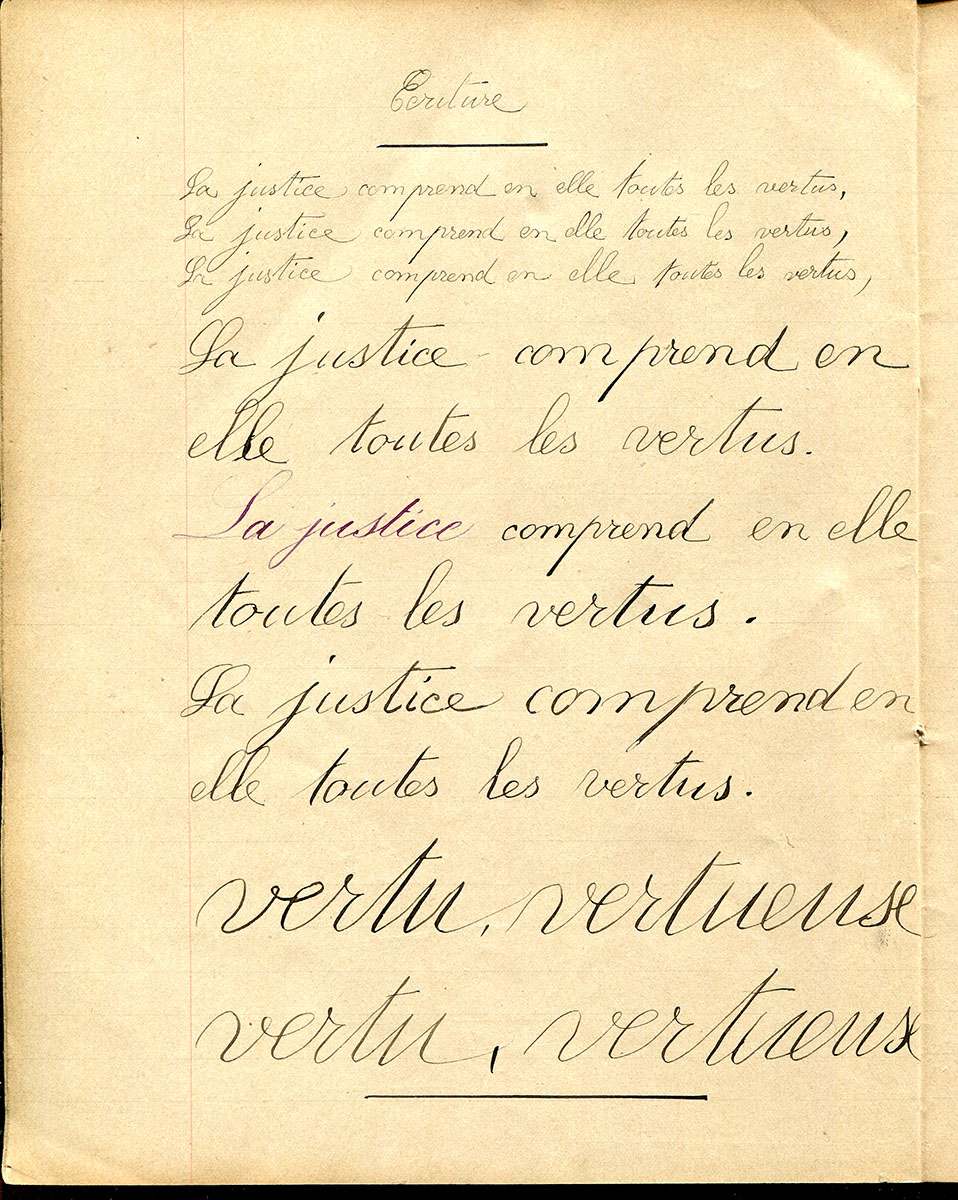 Ecriture
La justice comprend en elle toutes les vertus,
La justice comprend en elle toutes les vertus,
La justice comprend en elle toutes les vertus,
La justice comprend en
elle toutes les vertus.
La justice comprend en elle
toutes les vertus.
La justice comprend en
elle toutes les vertus.
vertu, vertueuse
vertu, vertueuse